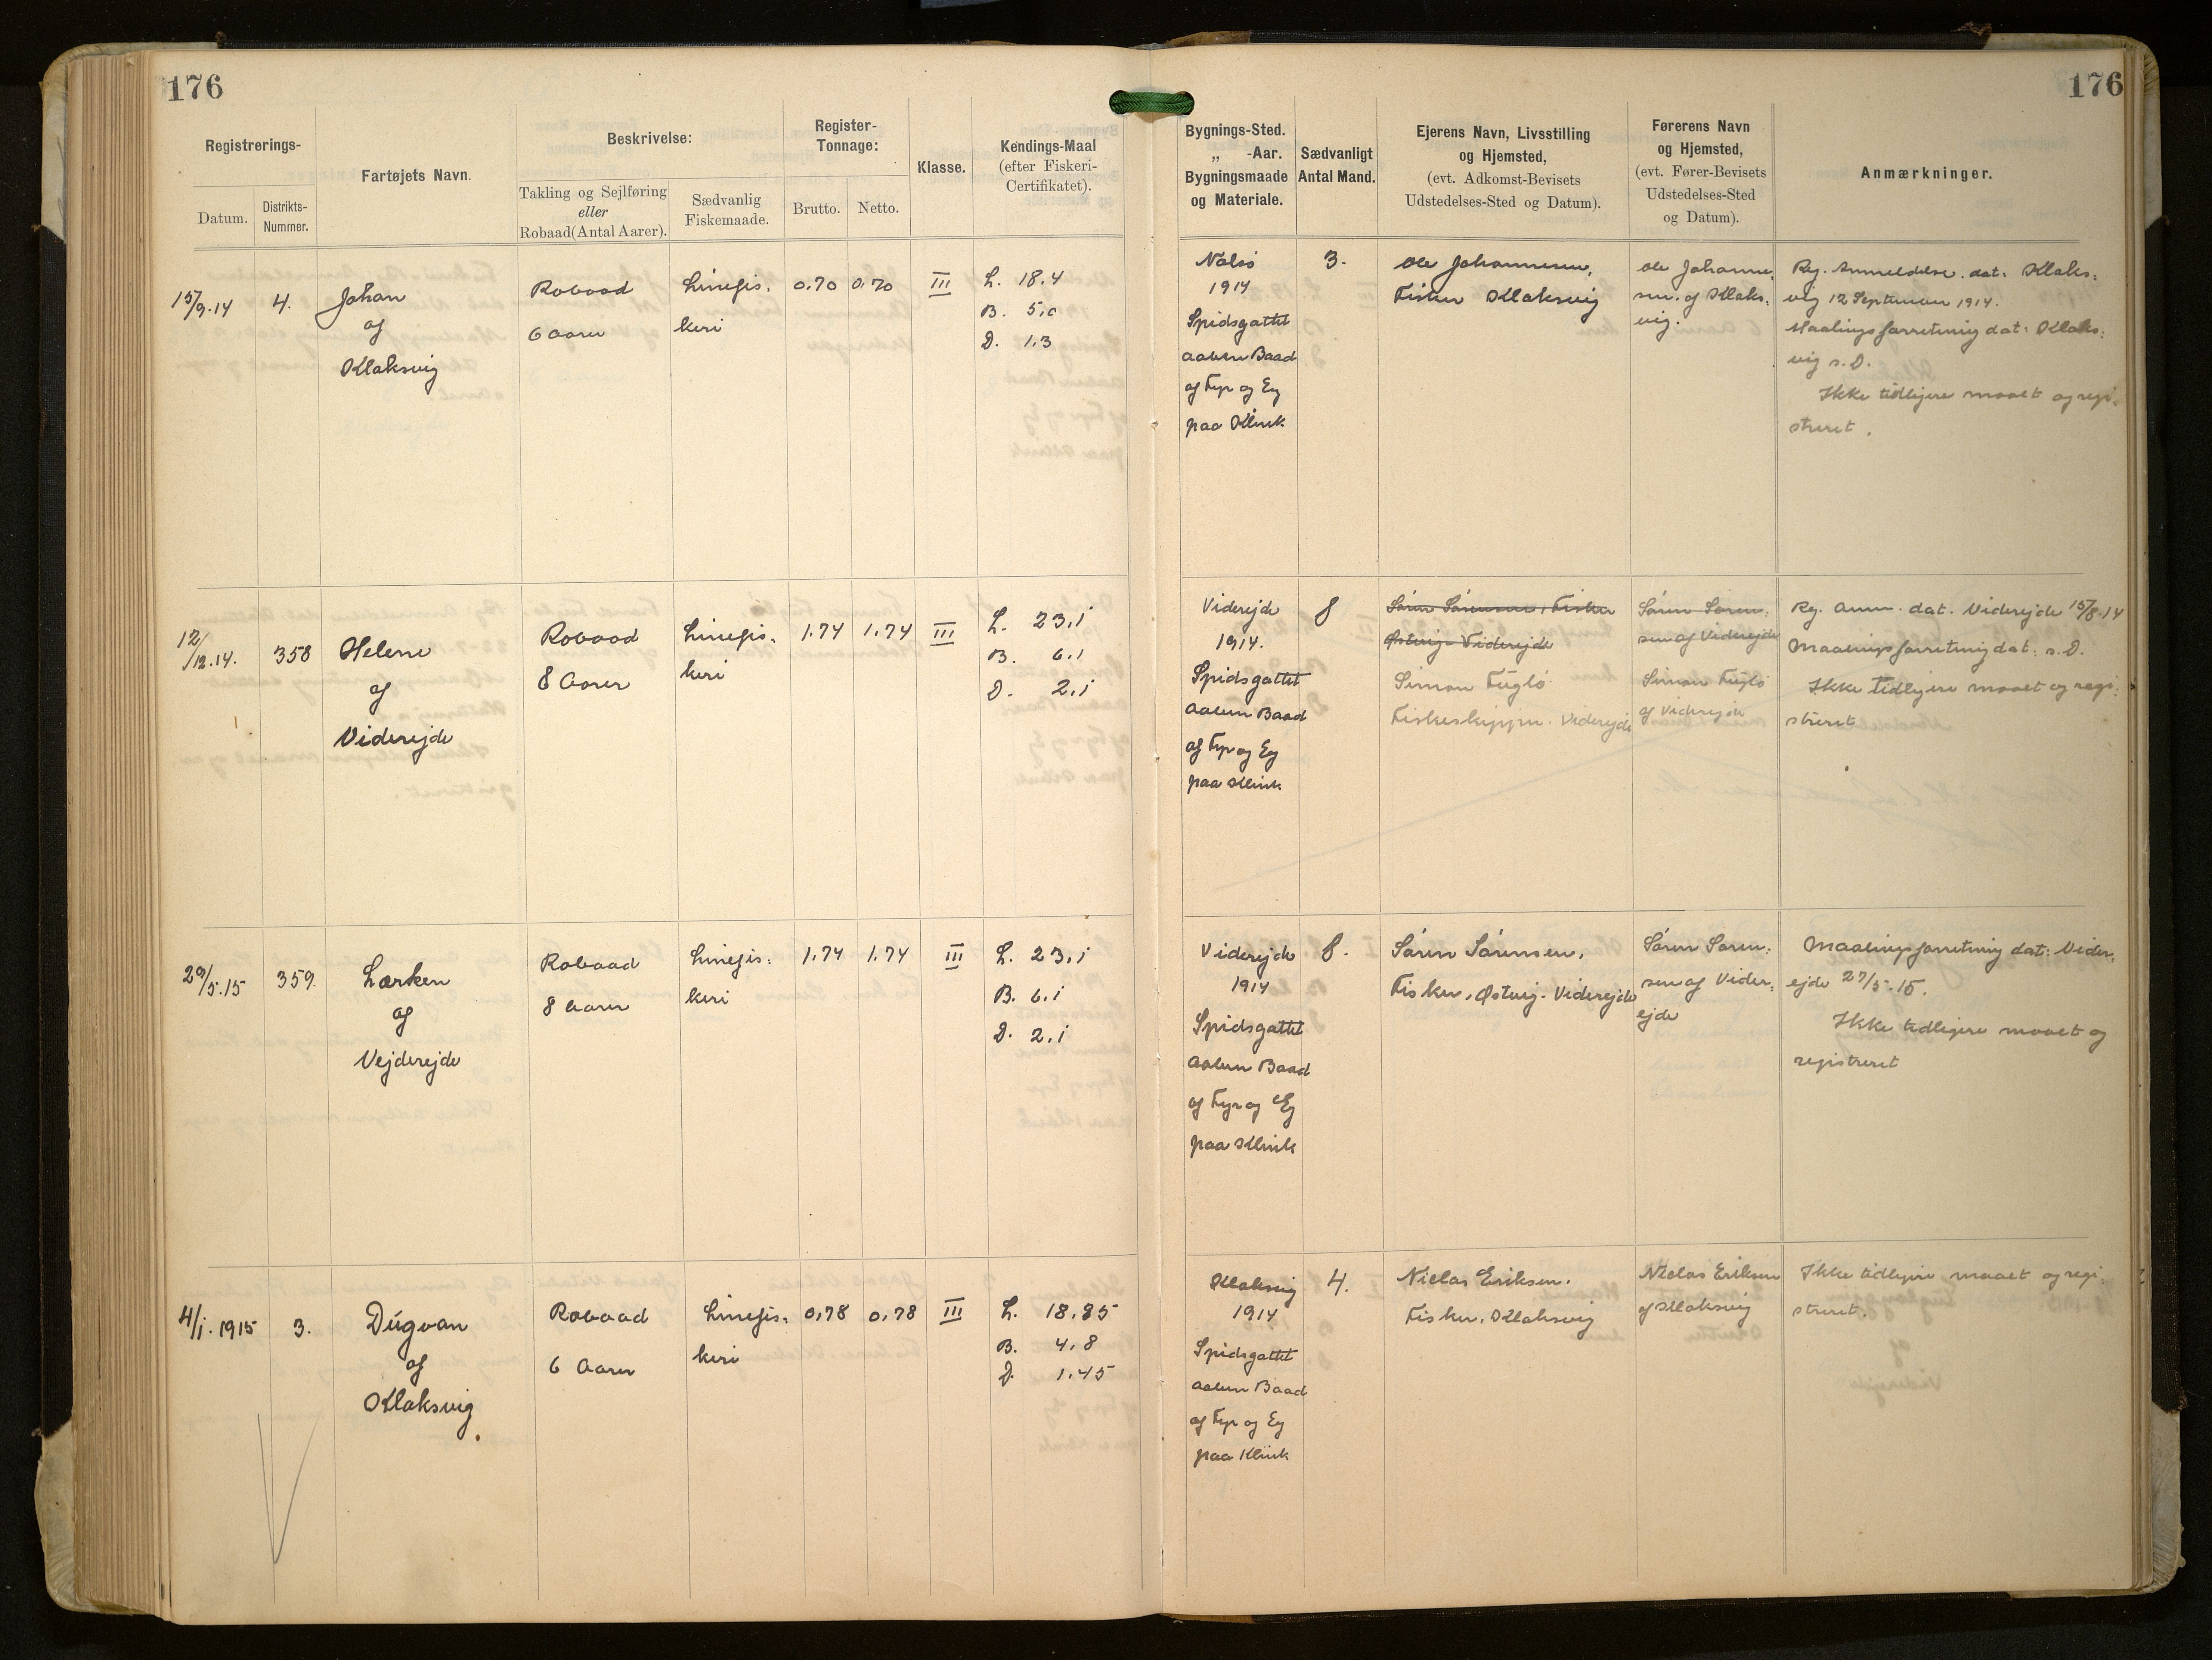 176
176
Registrerings-
Datum.
Distrikts-
Nummer.
Fartøjets Navn.
Beskrivelse:
Takling og Sejlføring
eller
Robaad (Antal Aarer).
Sædvanlig
Fiskemaade.
Register-
Tonnage:
Brutto.
Netto.
Klasse.
Kendings-Maal
(efter Fiskeri-
Certifikatet).
Bygnings-Sted.
„ -Aar.
Bygningsmaade
og Materiale.
Sædvanligt
Antal Mand.
Ejerens Navn, Livsstilling
og Hjemsted,
(evt. Adkomst-Bevisets
Udstedelses-Sted og Datum).
Førerens Navn
og Hjemsted,
(evt. Fører-Bevisets
Udstedelses-Sted
og Datum).
Anmærkninger.
15/9.14
4.
Johan
af
Klaksvig
Robaad
6 Aarer
Linefis-
keri
0.70
0.70
III
L. 18.4
B. 5,0
D. 1.3
Nolsø
1914
Spidsgattet
aaben Baad
af Fyr og Eg
paa Klink
3.
Ole Johannesen,
Fisker Klaksvig
Ole Johanne-
sen. af Klaks-
vig.
Reg. Anmeldelse. dat: Klaks-
vig 12 September 1914.
Maalingsforretning dat: Klaks-
vig s. D.
Ikke tidligere maalt og regi-
streret.
12/12.14.
358
Helene
af
Viderejde
Robaad
8 Aarer
Linefis-
keri
1.74
1.74
III
L. 23,1
B. 6.1
D. 2,1
Viderejde
1914.
Spidsgattet
aaben Baad
af Fyr og Eg
paa Klink
8
Søren Sørensen, Fisker
Østvig. Viderejde
Simon Fuglø
Fiskeskipper. Viderejde
Søren Søren-
sen af Viderejde
Simon Fuglø
af Viderejde
Reg. Anm. dat. Viderejde 15/8.14
Maalingsforretning dat: s. D.
Ikke tidligere maalt og regi-
streret
29/5.15
359.
Lærken
af
Vejderejde
Robaad
8 Aarer
Linefis-
keri
1.74
1.74
III
L. 23,1
B. 6.1
D. 2,1
Viderejde
1914
Spidsgattet
aaben Baad
af Fyr og Eg
paa Klink
8.
Søren Sørensen,
Fisker, Østvig. Viderejde
Søren Søren-
sen af Vider-
ejde
Maalingsforretning dat: Vider-
ejde 27/5.15.
Ikke tidligere maalt og
registreret
4/1.1915
3.
Dúgvan
af
Klaksvig
Robaad
6 Aarer
Linefis-
keri
0,78
0,78
III
L. 18,85
B. 4,8
D. 1.45
Klaksvig
1914
Spidsgattet
aaben Baad
af Fyr og Eg
paa Klink
4.
Niclas Eriksen.
Fisker, Klaksvig
Niclas Eriksen
af Klaksvig
Ikke tidligere maalt og regi-
streret.